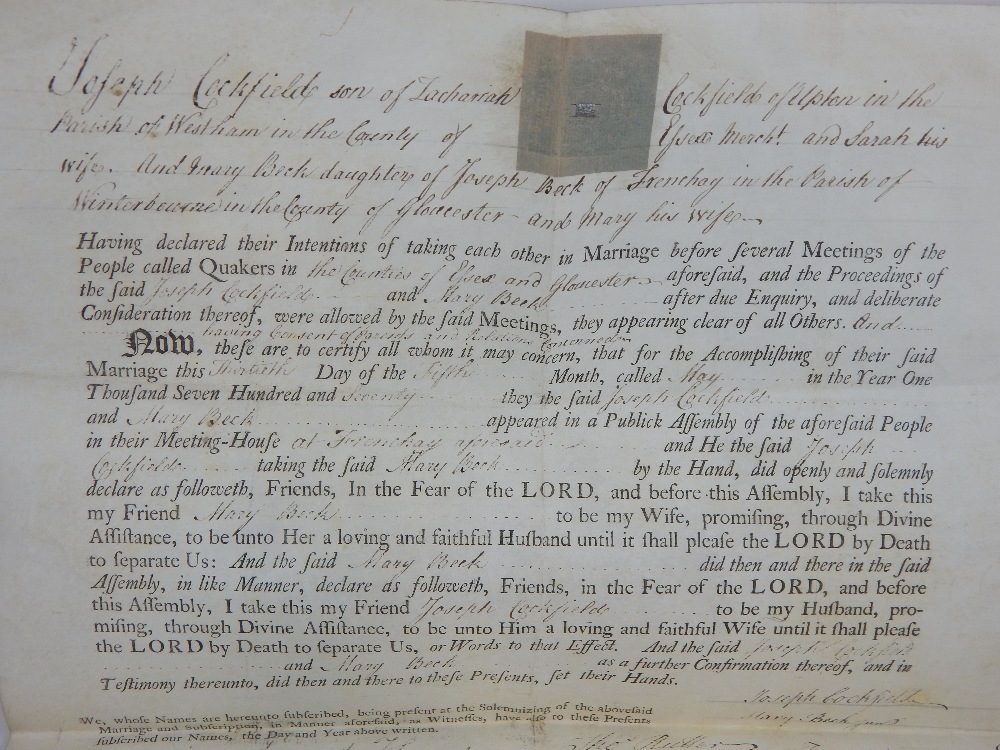 Joseph Cockfield son of Zachariah Cockfield of Upton in the
Parish of Westham in the County of Essex Mercht. and Sarah his
wife. And Mary Beck daughter of Joseph Beck of Frenchay in the Parish of
Winterbourne in the County of Gloucester - and Mary his Wife
Having declared their Intentions of taking each other in Marriage before ſeveral Meetings of the
People called Quakers in the Counties of Essex and Gloucester aforeſaid, and the Proceedings of
the ſaid Joseph Cockfield and Mary Beck after due Enquiry, and deliberate
Conſideration thereof, were allowed by the ſaid Meetings, they appearing clear of all Others. And
having Consent of Parents and Relations concerned
Now, theſe are to certify all whom it may concern, that for the Accompliſhing of their ſaid
Marriage this Thirtieth Day of the Fifth Month, called May in the Year One
Thouſand Seven Hundred and Seventy they the ſaid Joseph Cockfield
and Mary Beck appeared in a Publick Aſſembly of the aforeſaid People
in their Meeting-Houſe at Frenchay aforesaid and He the ſaid Joseph
Cockfield taking the ſaid Mary Beck by the Hand, did openly and ſolemnly
declare as followeth, Friends, In the Fear of the LORD, and before this Aſſembly, I take this
my Friend Mary Beck to be my Wife, promiſing, through Divine
Aſſiſtance, to be unto Her a loving and faithful Huſband until it ſhall pleaſe the LORD by Death
to ſeparate Us: And the ſaid Mary Beck did then and there in the ſaid
Aſſembly, in like Manner, declare as followeth, Friends, in the Fear of the LORD, and before
this Aſſembly, I take this my Friend Joseph Cockfield to be my Huſband, pro-
miſing, through Divine Aſſiſtance, to be unto Him a loving and faithful Wife until it ſhall pleaſe
the LORD by Death to ſeparate Us, or Words to that Effect. And the ſaid Joseph Cockfield
and Mary Beck as a further Confirmation thereof, and in
Teſtimony thereunto, did then and there to theſe Preſents, ſet their Hands.
Joseph Cockfield
Mary Beck
We, whoſe Names are hereunto ſubſcribed, being preſent at the Solemnizing of the aboveſaid
Marriage and Subſcription, in Manner aforeſaid, as Witneſſes, have alſo to theſe Preſents
ſubſcribed our Names, the Day and Year above written.